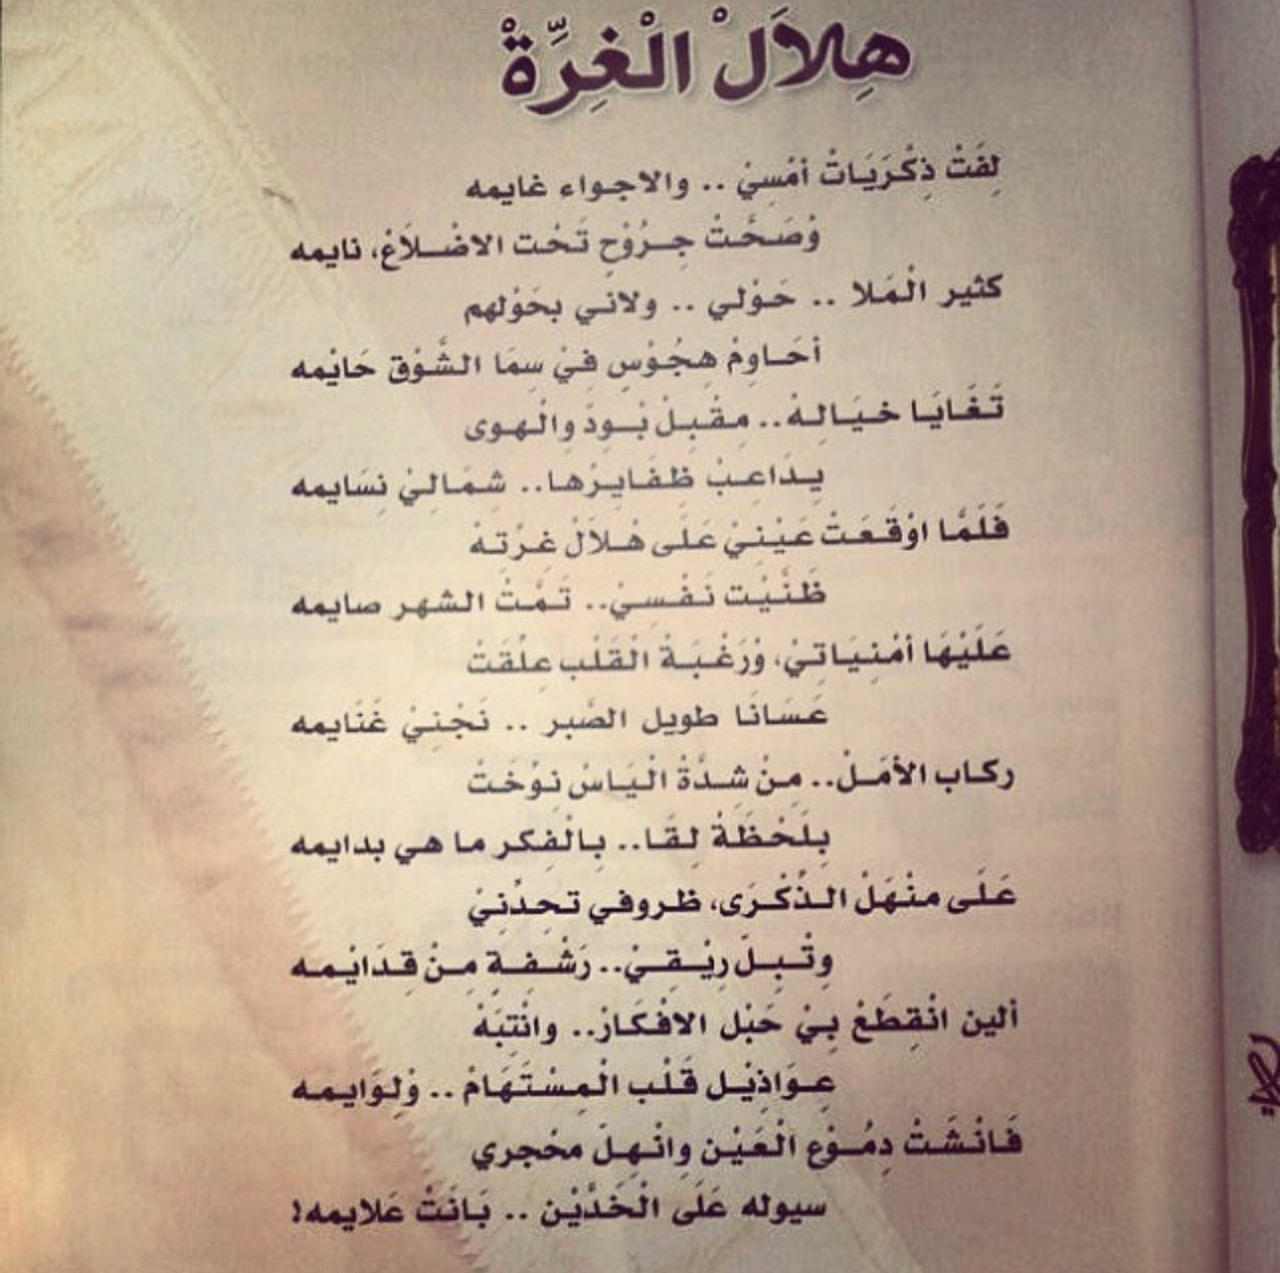 هِلاَلْ الْغِرِّةْ
لِفَتْ ذِكْرَيَاتْ أمْسِيْ .. والاجواء غايمه
وْصَحَّتْ جِرُوْحٍ تَحْت الاضْلاَعْ، نايمه
كثير الْمَلا .. حَوْلي .. ولاني بحَوْلهم
أحَاوِمْ هِجُوْسٍ فيْ سِمَا الشَّوْق حَايْمه
تَغَايَا خيَالِهْ.. مِقْبِلْ بْودّ والْهوى
يدَاعِبْ ظِفَايِرْها.. شِمَاليْ نِسَايمه
فَلَمَّا اوْقَعَتْ عَيْنيْ عَلَى هْلاَلْ غِرّتِهْ
ظَنَّيْت نَفْسِيْ.. تَمَّتْ الشهر صايمه
عَلَيْهَا أمْنِيَاتيْ، وْرَغْبَةْ الْقَلْب عِلْقَتْ
عَسَانَا طويل الصَّبر .. نَجْنيْ غَنَايمه
ركاب الأمَلْ.. مِنْ شدَّةْ الْيَاسْ نوّخَتْ
بِلَحْظَةْ لِقَا.. بِالْفِكر ما هي بدايمه
عَلَى منْهَلْ الذِّكْرَى، ظروفي تحِدّنيْ
وِتْبِلّ رِيْقيْ.. رَشْفةٍ مِنْ قِدَايْمه
ألين انْقِطَعْ بيْ حَبْل الافْكَارْ.. وانْتِبَهْ
عوَاذِيْل قَلْب الْمِسْتَهَامْ .. وْلِوَايمه
فَانْشَتْ دِمُوْع الْعَيْن وِانْهلّ محْجري
سيوله عَلَى الْخَدَّيْن .. بَانَتْ عَلايمه!